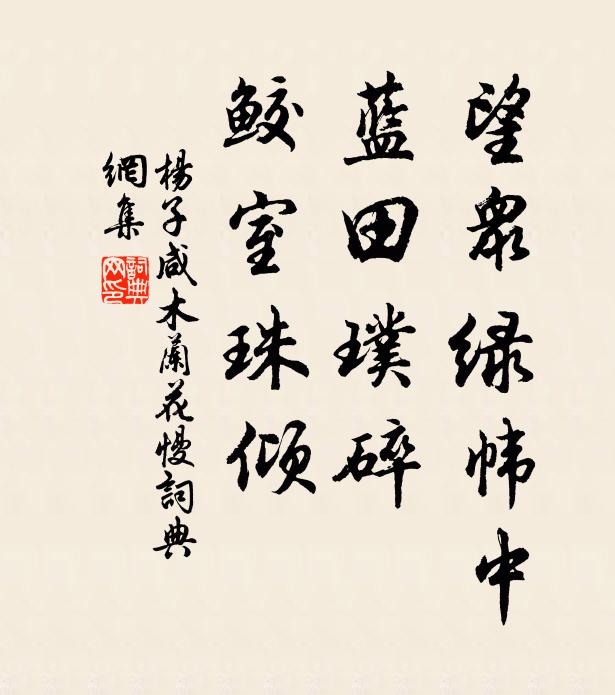 望衆绿幃中
藍田璞碎
鮫室珠傾
楊子咸木蘭花慢詞典
網集
詞典網印